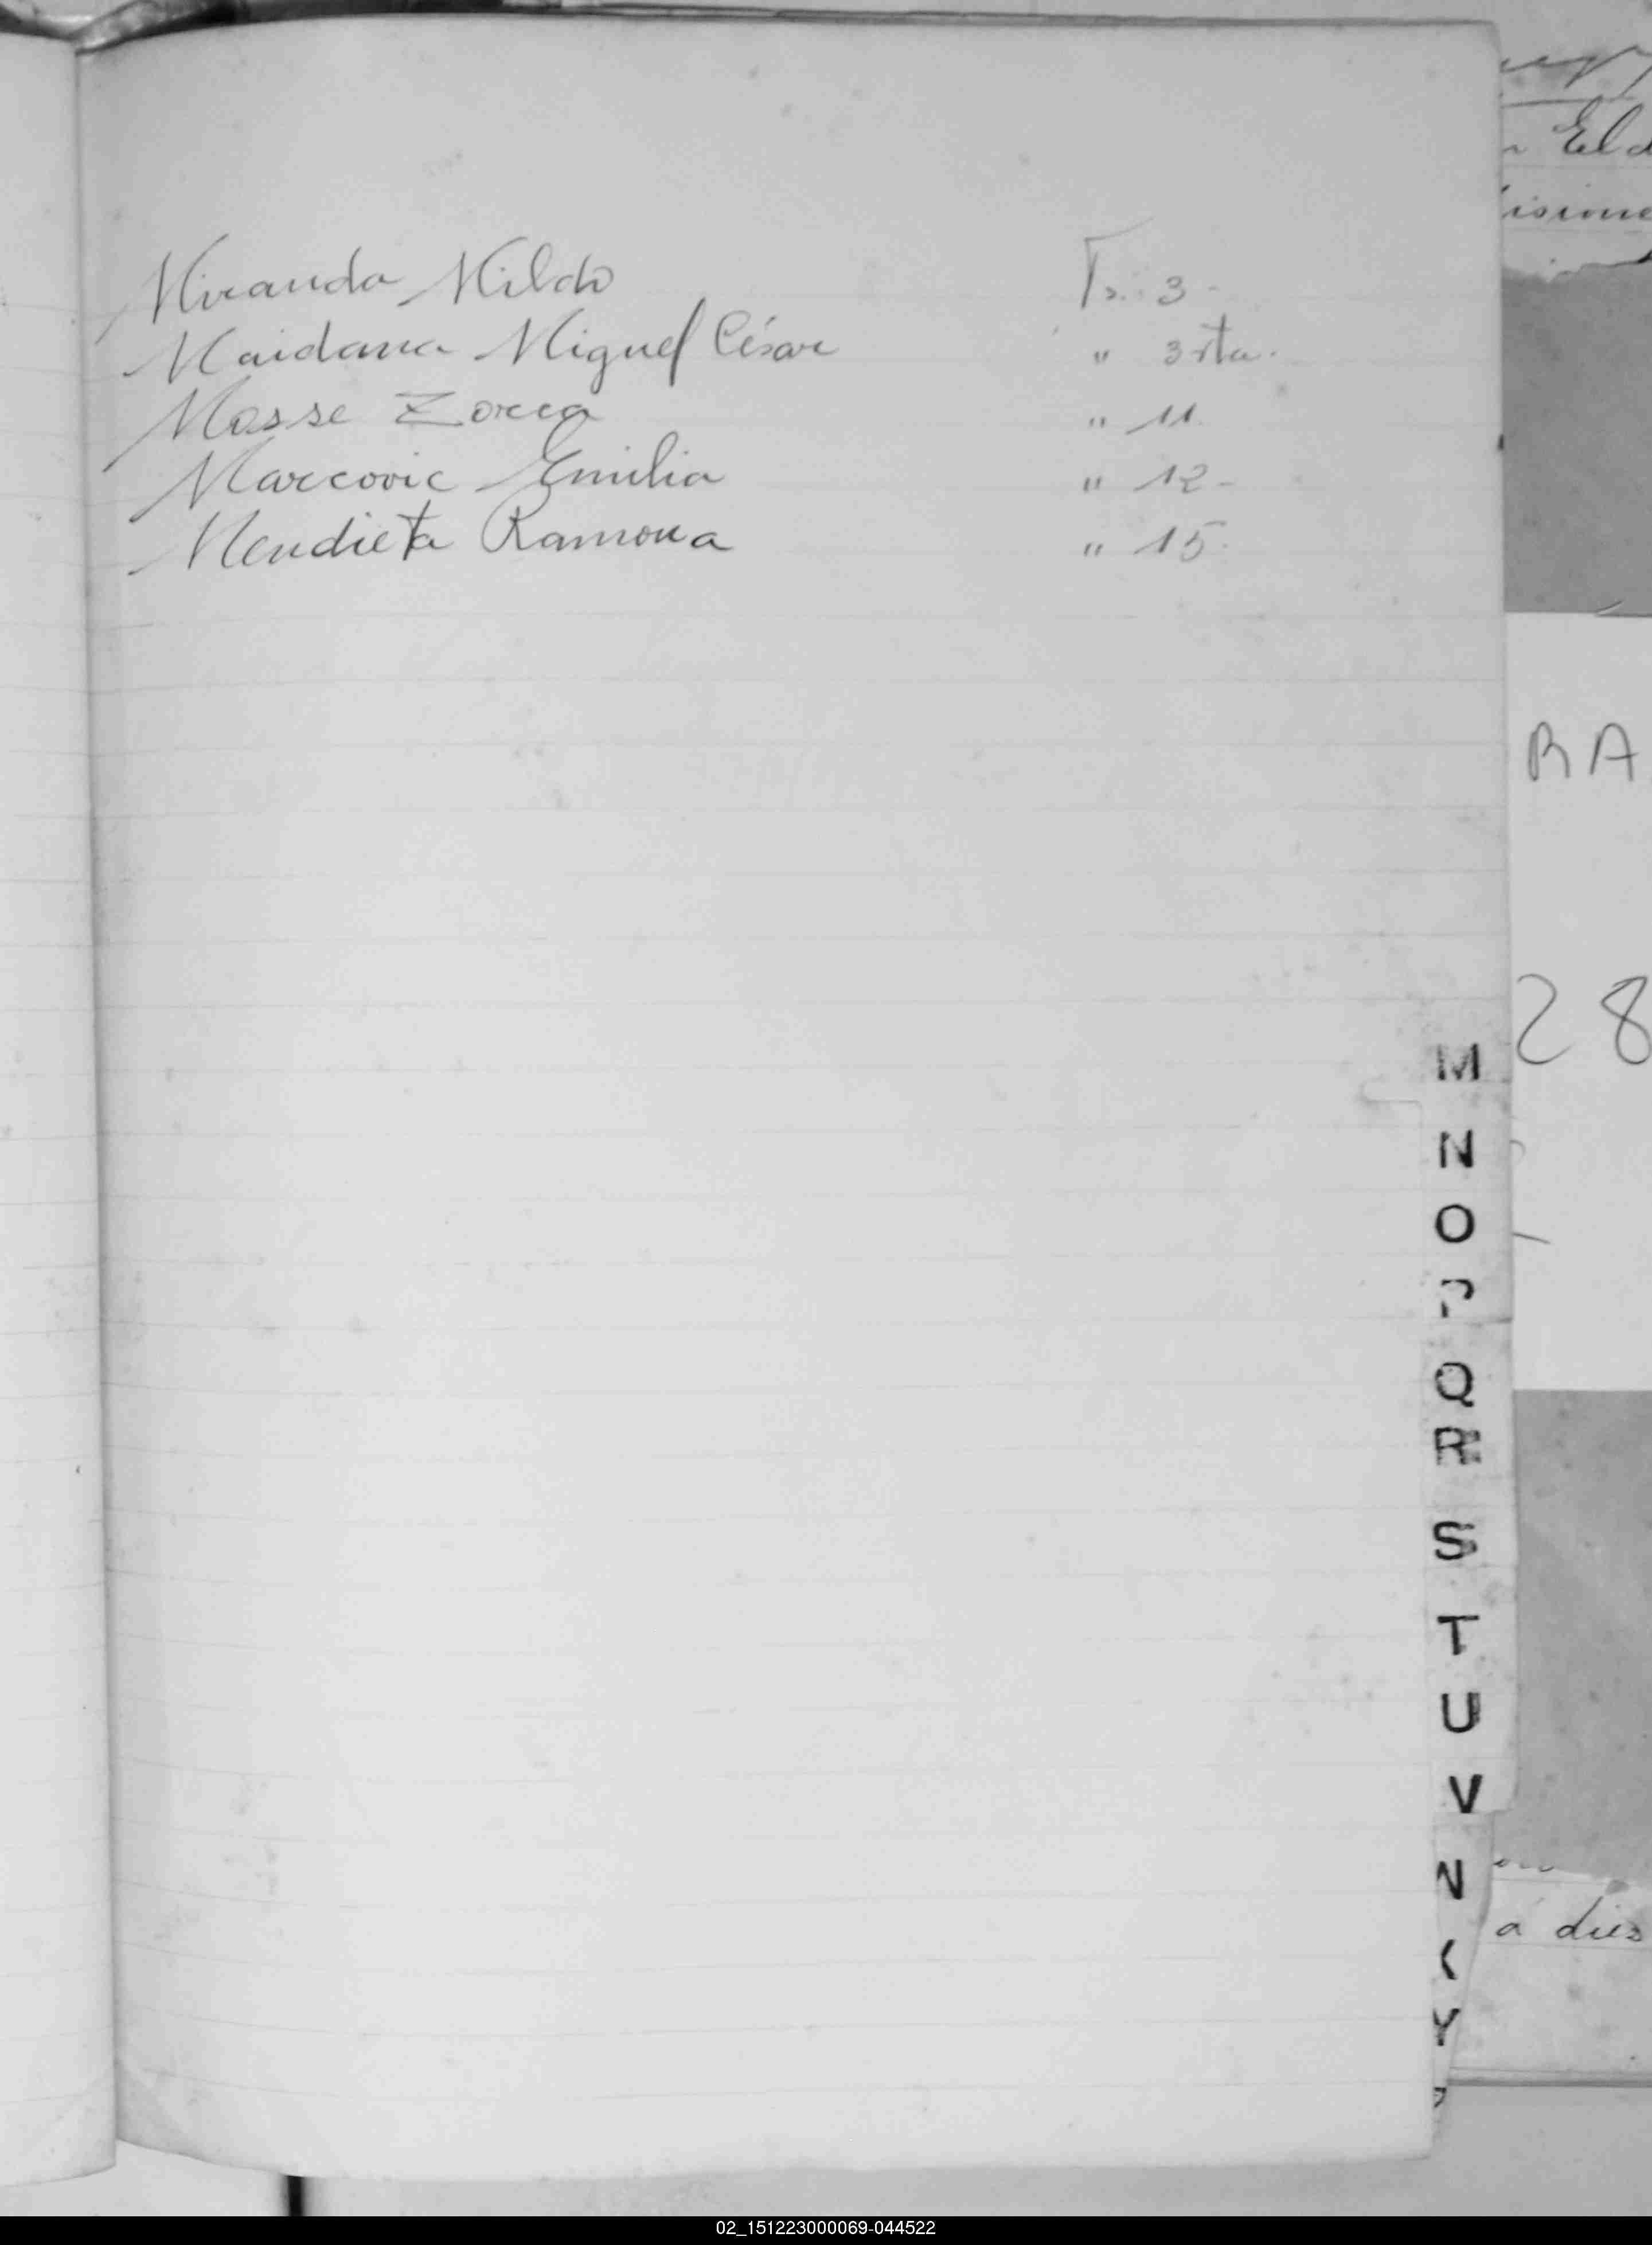 Miranda Mildo Fs. 3-
Maidana Miguel César " 3 vta.
Mosse Zorca " 11.
Marcovic Emilia " 12-
Mendieta Ramona " 15.
M
N
O
P
Q
R
S
T
U
V
Y
RA
28
a dies
02_151223000069-044522